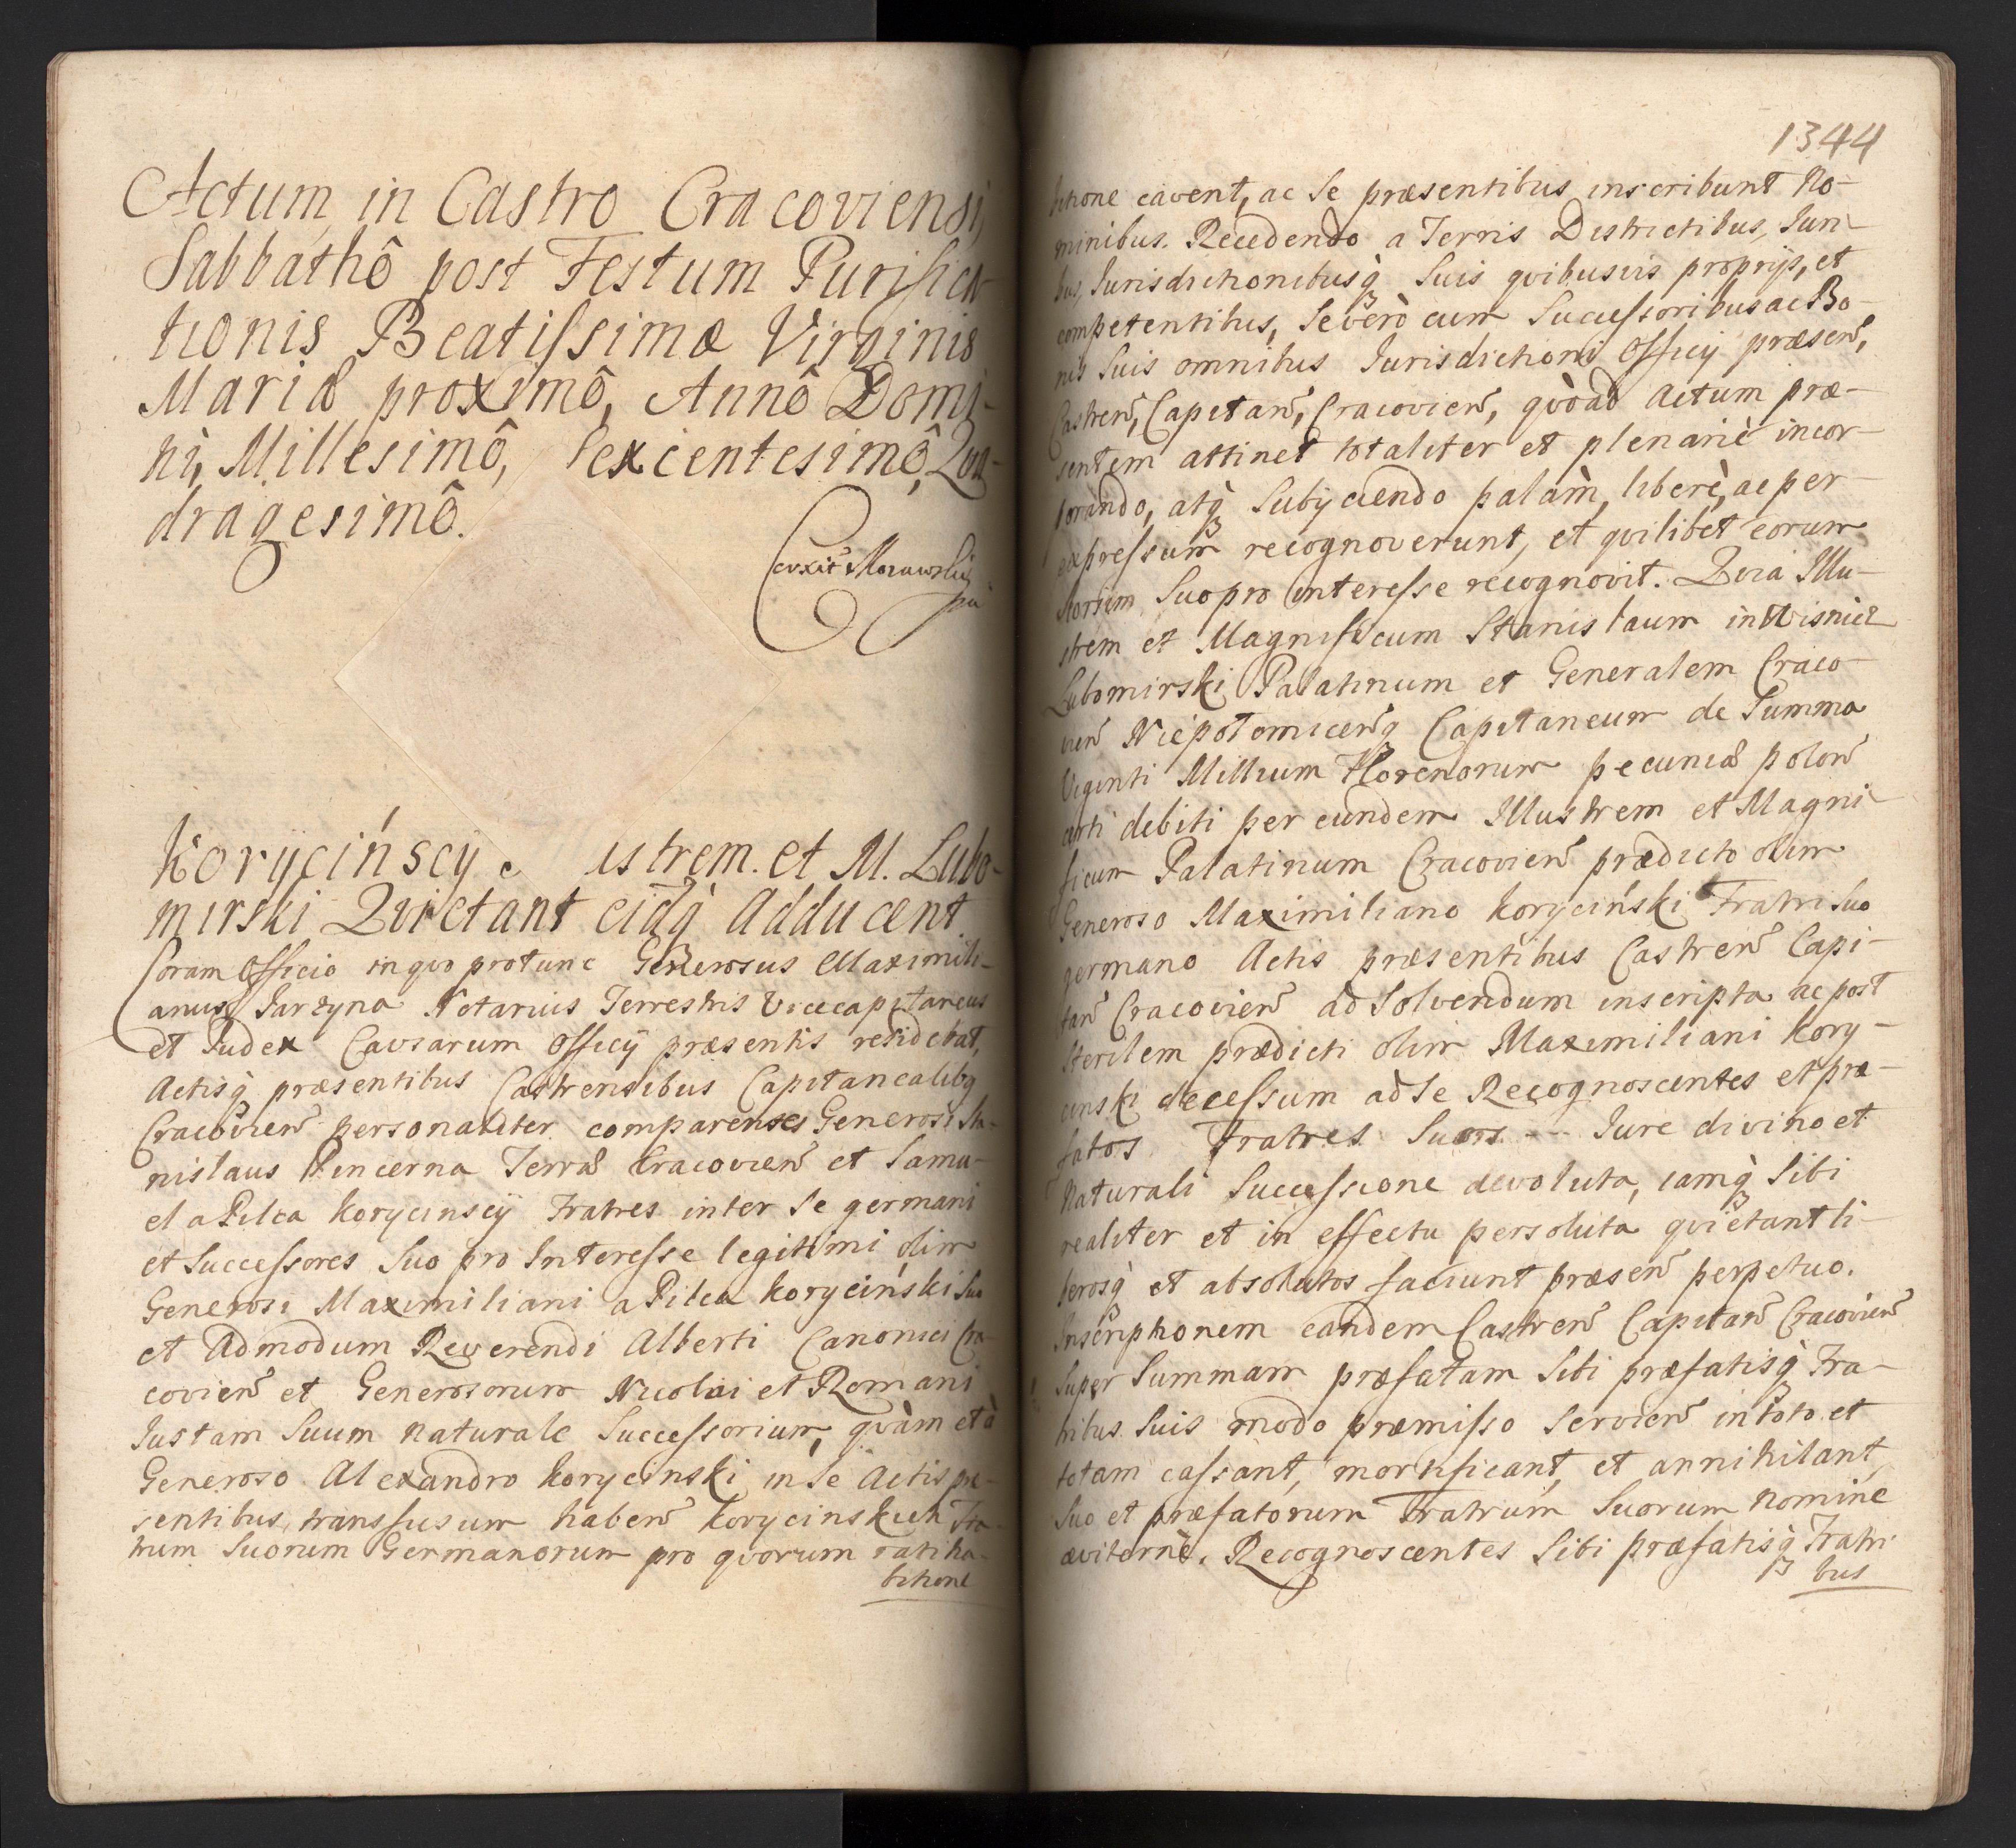 Actum in Castro Cracoviensi,
Sabbathô post Festum Purifica-
tionis Beatissimæ Virginis
Mariæ proximô, Annô Domi-
ni, Millesimô, Sexcentesimô, Qua-
dragesimô.
Coxit Morawski
Korycińscy ustrem. et M. Lubo-
mirski Quietant eidq Adducent
Coram Officio in quo protunc Generosus Maximili-
anus Jarzyna Notarius Terrestris Vicecapitaneus
et Judex Causarum Officij præsentis residebat,
Actisq præsentibus Castrensibus Capitanealibq
Cracovien personaliter comparentes Generosi Sta-
nislaus Pincerna Terræ Cracovien et Samu-
el a Pilca Korycinscÿ Fratres inter Se germani
et Successores Suo pro Interesse legitimi olim
Generosi Maximiliani a Pilca Koryciński Suo
et Admodum Reverendi Alberti Canonici Cra-
covien et Generosorum Nicolai et Romani
Justam Suum naturale Successorium, quàm et à
Generoso Alexandro Korycinski in Se Actis præ-
sentibus, transfusum haben Korycinskich Fra-
trum Suorum Germanorum pro quorum ratiha-
bitione
1344
bitione cavent, ac Se præsentibus inscribunt No-
minibus. Recedendo a Terris Districtibus, Juri-
bus, Jurisdictionibusq Suis quibusvis proprijs, et
competentibus, Se verò cum Successoribus ac Bo-
nis Suis omnibus Jurisdictioni Officij præsen,
Castren, Capitan, Cracovien, quòad Actum præ-
sentem attinet totaliter et plenariè incor-
porando, atq Subijciendo palàm, liberè, ac per
expressum recognoverunt, et quilibet eorum
seorsim Suo pro interesse recognovit. Quia Illu-
strem et Magnificum Stanislaum in Wisnicz
Lubomirski Palatinum et Generalem Craco-
vien Niepotomicenq Capitaneum de Summa
Viginti Millium Florenorum pecuniæ polon
certi debiti per eundem Illustrem et Magni-
ficum Palatinum Cracovien prædicto olim
Generoso Maximiliano Koryciński Fratri Suo
germano Actis præsentibus Castren Capi-
tan Cracovien ad Solvendum inscripta ac post
Sterilem prædicti olim Maximiliani Kory-
cinski decessum ad Se Recognoscentes et præ-
fatos Fratres Suos Jure divino et
Naturali Successione devoluta, iamq Sibi
realiter et in effectu persoluta quietant li-
berosq et absolutos faciunt præsen perpetuo.
Inscriptionem eandem Castren Capitan Cracovien
Super Summam præfatam Sibi præfatisq Fra-
tribus Suis modo præmisso Servien in toto et
totam cassant, mortificant, et annihilant,
Suo et præfatorum Fratrum Suorum nomine
æviternè. Recognoscentes Sibi præfatisq Fratri
bus